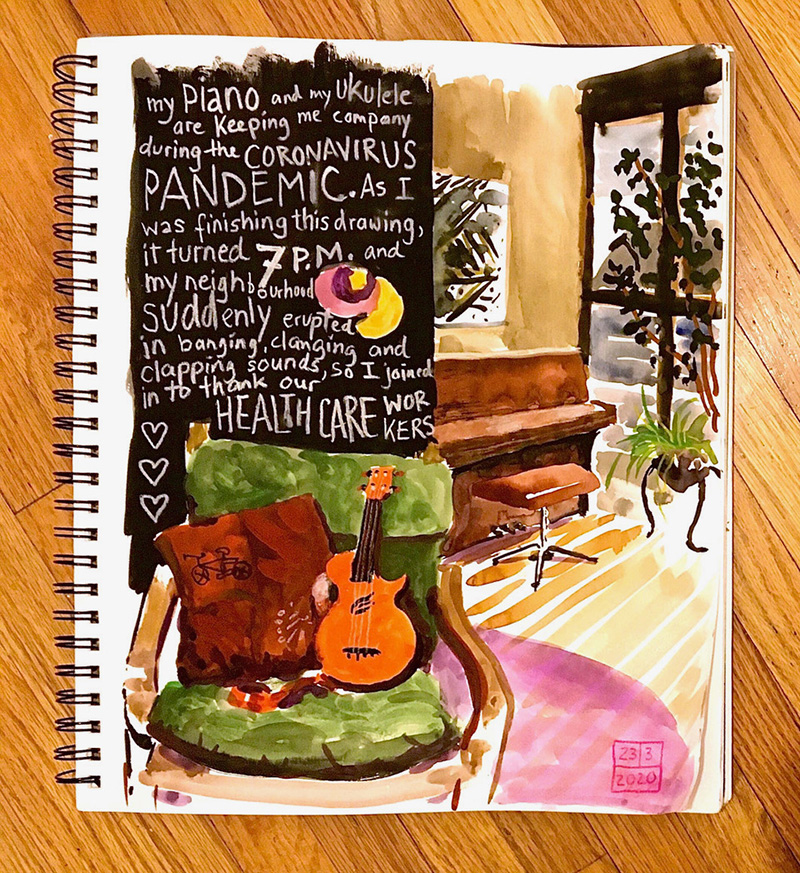 my Piano and my UKulele
are Keeping me company
during the CORONAVIRUS
PANDEMIC. As I
was finishing this drawing,
it turned 7 P.M. and
my neighbourhood
suddenly erupted
in banging, clanging and
clapping sounds, so I joined
in to thank our
HEALTH CARE WOR
KERS
23 3
2020